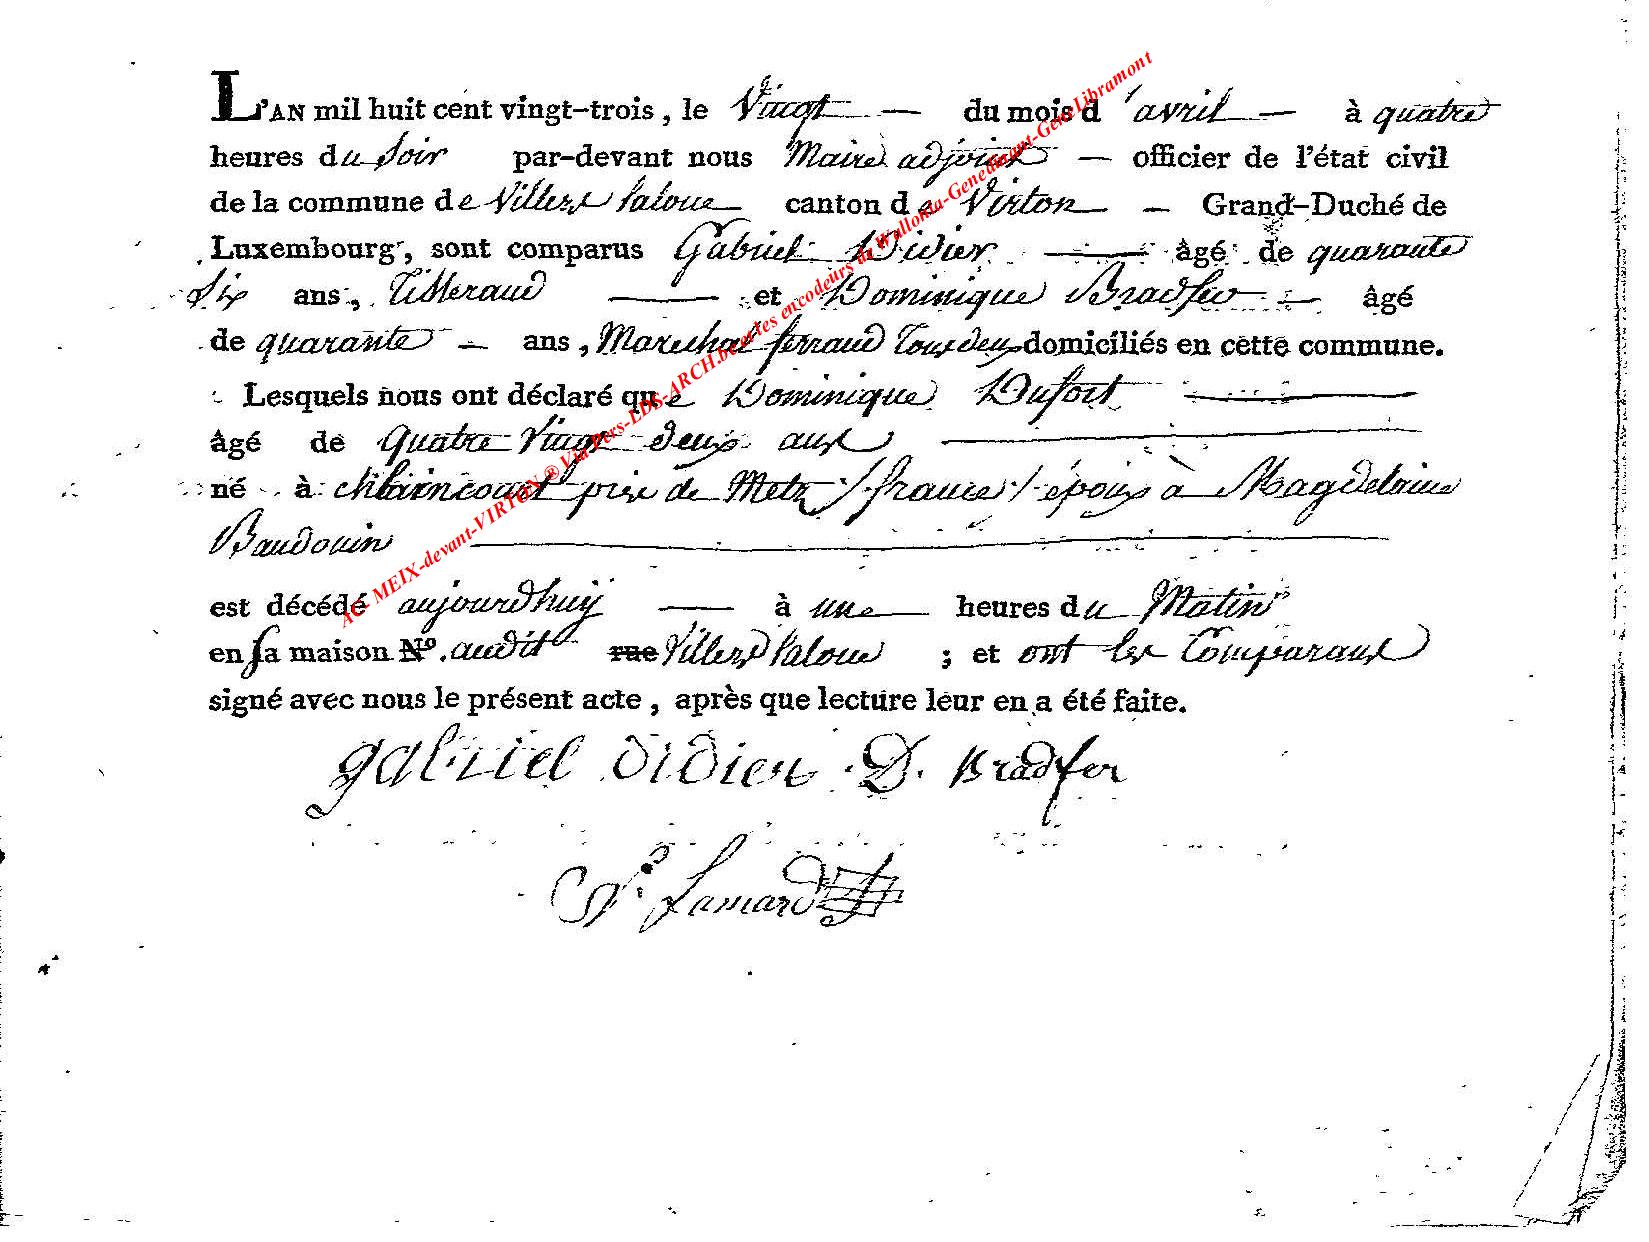 L'AN mil huit cent vingt-trois, le Vingt — du mois d'avril — à quatre
heures du Soir par-devant nous Maire adjoint — officier de l'état civil
de la commune de Villers laloue canton de Virton — Grand-Duché de
Luxembourg, sont comparus Gabriel Didier — âgé de quarante
Six ans, Tisserand — et Dominique Bradfer — âgé
de quarante — ans, Marechal ferrand Tous deux domiciliés en cette commune.
Lesquels nous ont déclaré que Dominique Dufort —
âgé de quatre Vingt deux ans —
né à près de Metz /france/ époux à Magdelaine
Baudouin —
est décédé aujourdhuy — à une heures du Matin
en sa maison N°. audit rue Villers laloue ; et ont les Comparans
signé avec nous le présent acte, après que lecture leur en a été faite.
gabriel didier D. Bradfer
Lamard
AC- MEIX-devant-VIRTON ® Via Pers-LDS-ARCH.be et les encodeurs de Wallonia-Genedinant-GeneLibramont